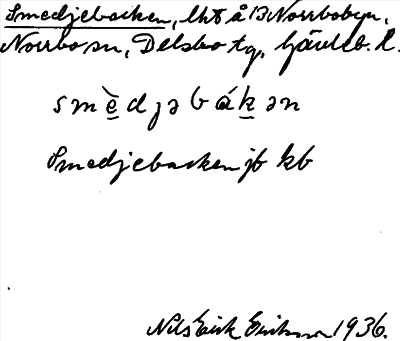 Smedjebacken, lht å 13 Norrbobyn,
Norrbo sn, Delsbo tg, Gävleb. l.
smèdjəbákən
Smedjebacken jb kb
Nils Eirik Eriksson 1936.